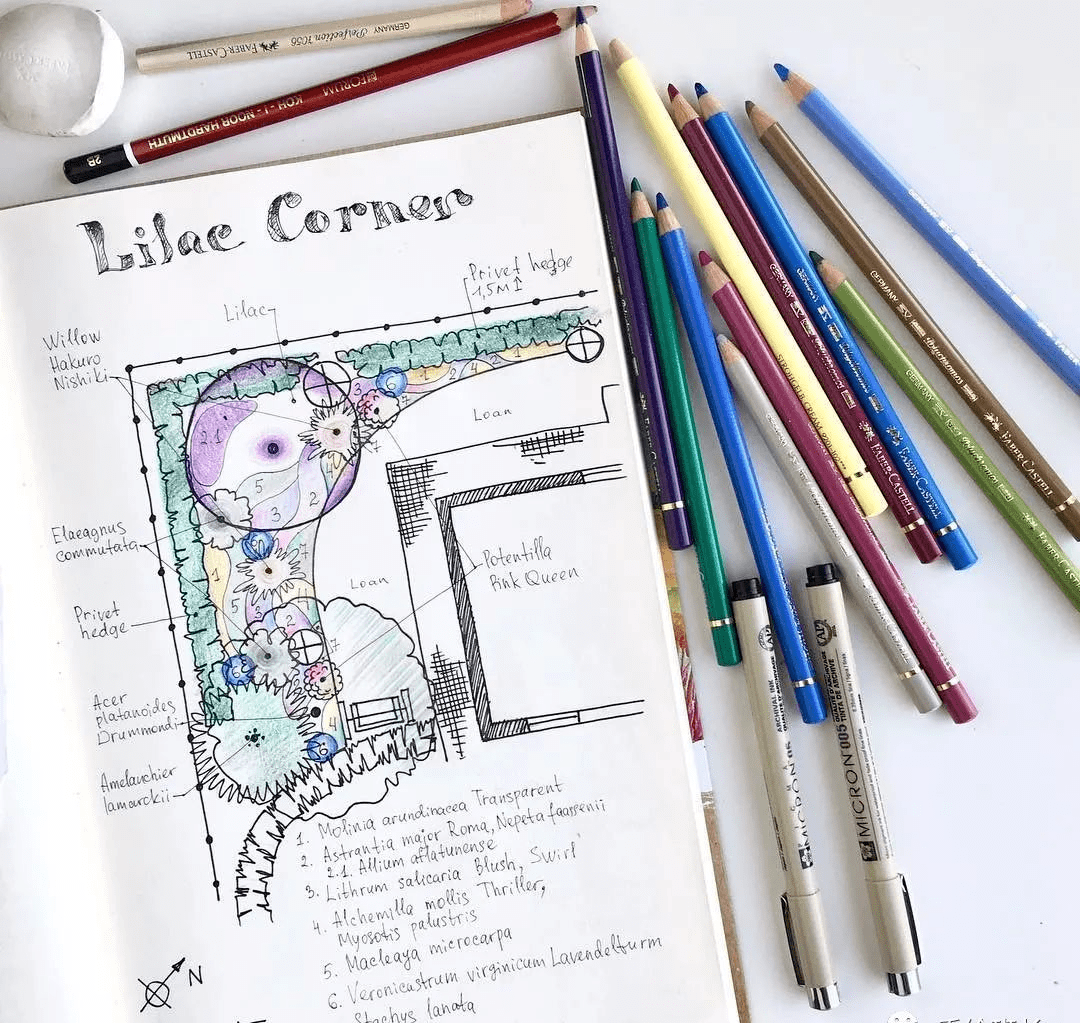 GERMANY Perfection 7056
FABER-CASTELL
FORUM
KOH-I-NOOR HARDTMUTH
2B
Lilac Corner
Privet hedge
1,5M
Lilac
Willow
Hakuro
Nishiki
2.1
5
3
2
3
6
1
2
4
2
1
Loan
Elaeagnus
commutata
1
7
5
3
2
Loan
7
Potentilla
Pink Queen
Privet
hedge
Acer
platanoides
Drummondi
6
Amelanchier
lamarckii
1. Molinia arundinacea Transparent
2. Astrantia major Roma, Nepeta faassenii
2.1. Allium aflatunense
3. Lithrum salicaria Blush, Swirl
4. Alchemilla mollis Thriller,
Myosotis palustris
5. Macleaya microcarpa
6. Veronicastrum virginicum Lavendelturm
Stachys lanata
N
GERMANY
FABER-CASTELL
FABER-CASTELL
GERMANY
FABER-CASTELL
GERMANY
ARCHIVAL INK
MICRON 005
MICRON